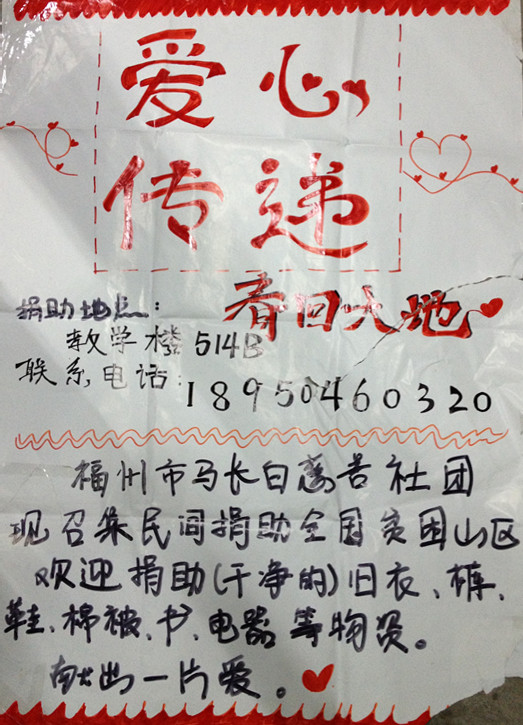 爱心
传递
春回大地
捐助地点：
教学楼514B
联系电话：18950460320
福州市马长白慈善社团
现召集民间捐助全国贫困山区
欢迎捐助(干净的)旧衣、裤、
鞋、棉被、书、电器等物资。
献出一片爱。